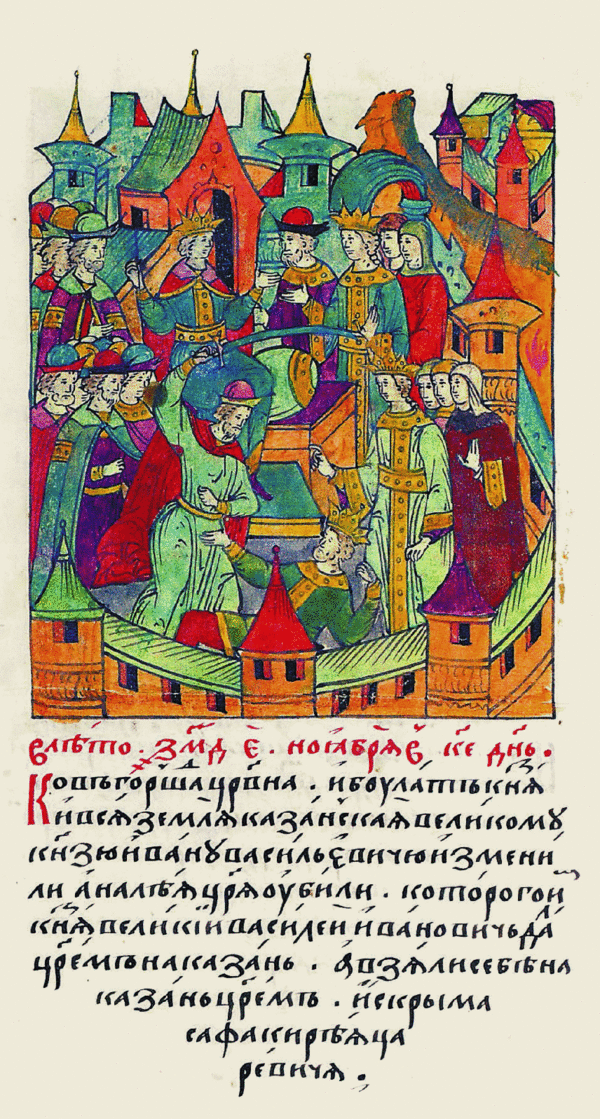 в лѣто. ҂зм҃д г҃. ноѧбрѧ в҃ к҃е дн҃ь.
Ковгоршад цр҃вна. и боулатъ кн҃зь
и всѧ землѧ казанскаѧ великому
кн҃зю ивану васильевичю измени
ли а налѣѧ цр҃ѧ оубили. которого
кн҃зь великїи василеи ивановичь да
цр҃емъ на казань. а взѧли себѣ на
казань цр҃емъ. ис крыма
сафакирѣѧ ца
ревичѧ.